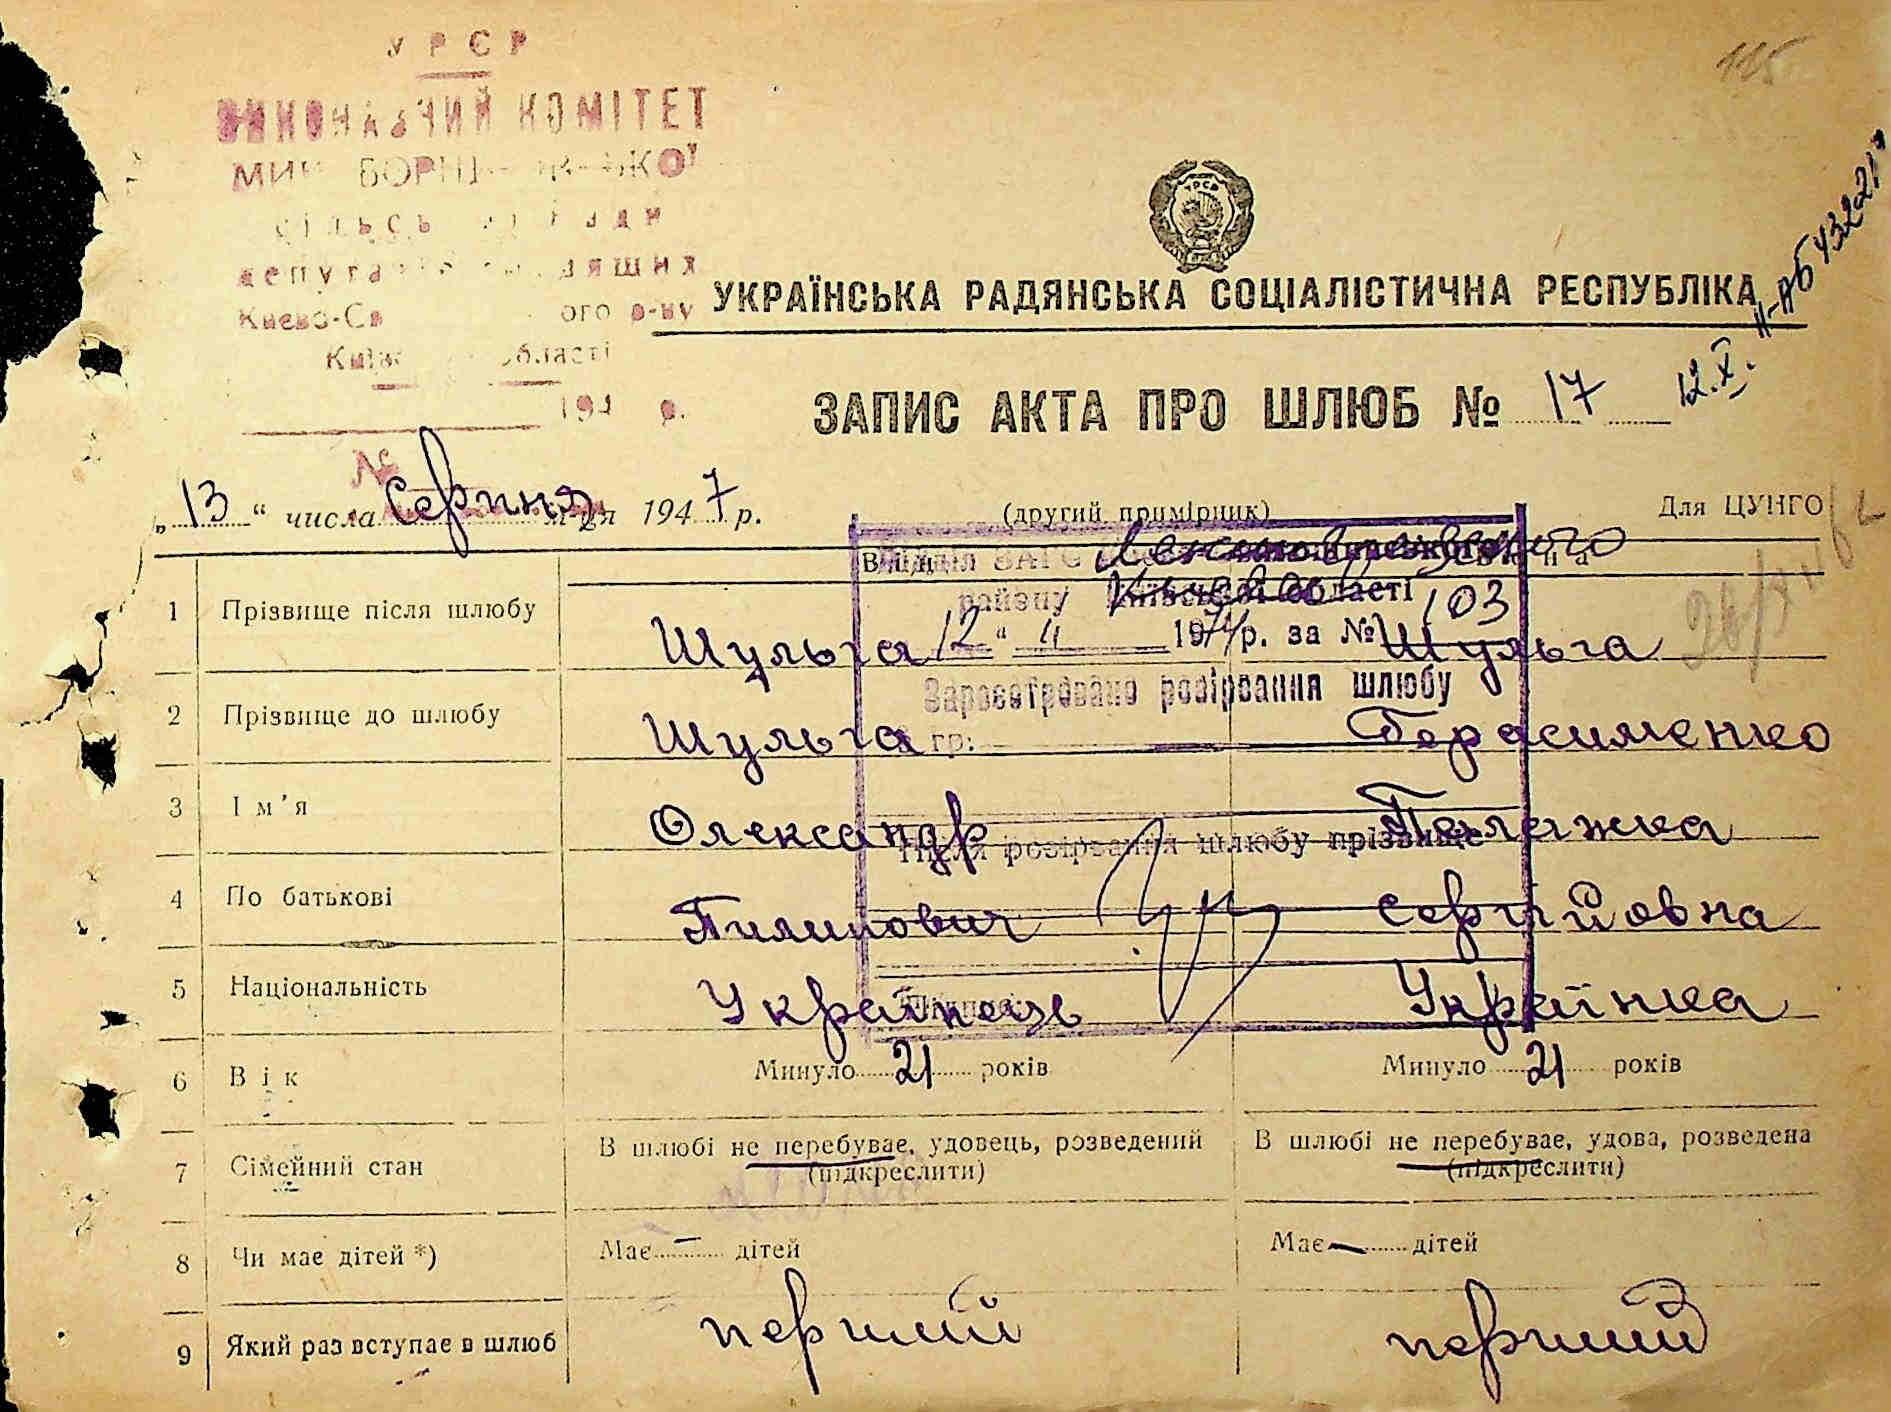 УРСР
ВИКОНАВЧИЙ КОМІТЕТ
115
УКРАЇНСЬКА РАДЯНСЬКА СОЦІАЛІСТИЧНА РЕСПУБЛІКА
ЗАПИС АКТА ПРО ШЛЮБ № 17
12.X.
„13“ числа Серпня м-ця 1947 р.
(другий примірник)
Для ЦУНГО
Відділ ЗАГС
району Київської області
12 " 11 1974 р. за № 103
Зареєстровано розірвання шлюбу
гр.
Після розірвання шлюбу прізвище
1 Прізвище після шлюбу Шульга Шульга
2 Прізвище до шлюбу Шульга Герасименко
3 Ім’я Олександр Палажка
4 По батькові Пилипович Сергійовна
5 Національність Українець Українка
6 Вік Минуло 21 років Минуло 21 років
7 Сімейний стан В шлюбі не перебуває, удовець, розведений (підкреслити) В шлюбі не перебуває, удова, розведена (підкреслити)
8 Чи має дітей *) Має — дітей Має — дітей
9 Який раз вступає в шлюб перший перший